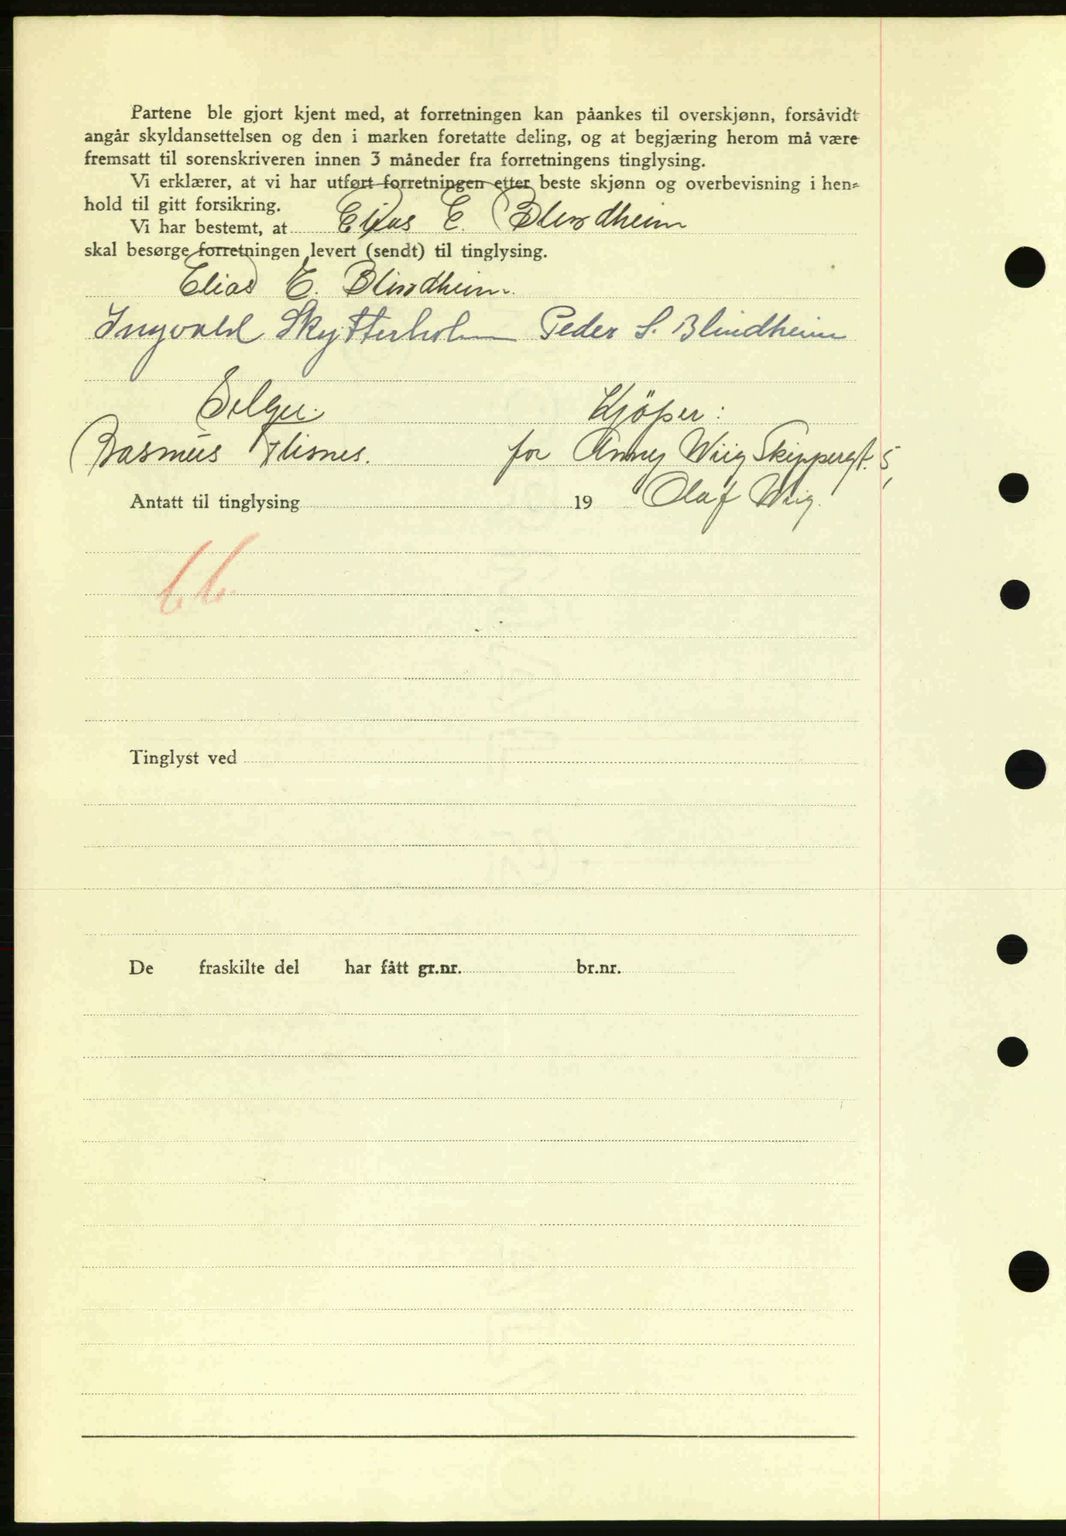 Partene ble gjort kjent med, at forretningen kan påankes til overskjønn, forsåvidt
angår skyldansettelsen og den i marken foretatte deling, og at begjæring herom må være
fremsatt til sorenskriveren innen 3 måneder fra forretningens tinglysing.
Vi erklærer, at vi har utført forretningen etter beste skjønn og overbevisning i hen-
hold til gitt forsikring.
Vi har bestemt, at Elias E. Blindheim
skal besørge forretningen levert (sendt) til tinglysing.
Elias E. Blindheim.
Ingvald Skytterholm Peder S. Blindheim
Selger. Kjöper:
Rasmus Flisnes. for Anny Wiig Skippergt. 5,
Antatt til tinglysing 19 Olaf Wiig.
66.
Tinglyst ved
De fraskilte del har fått gr.nr. br.nr.